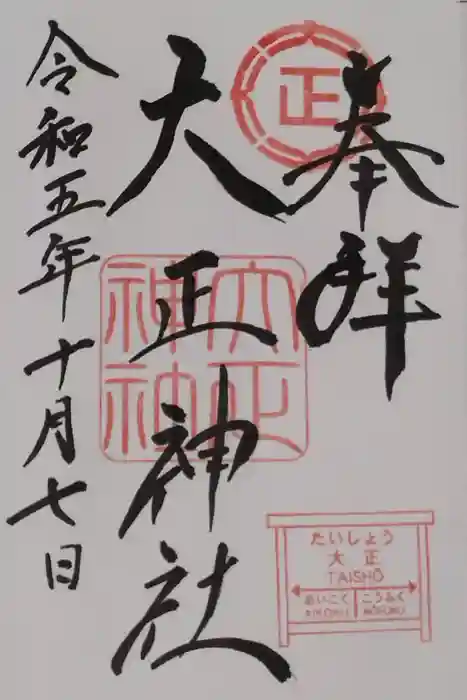 奉拝
正
大正神社
令和五年十月七日
たいしょう
大正
TAISHŌ
あいこく こうふく
AIKOKU KŌFUKU